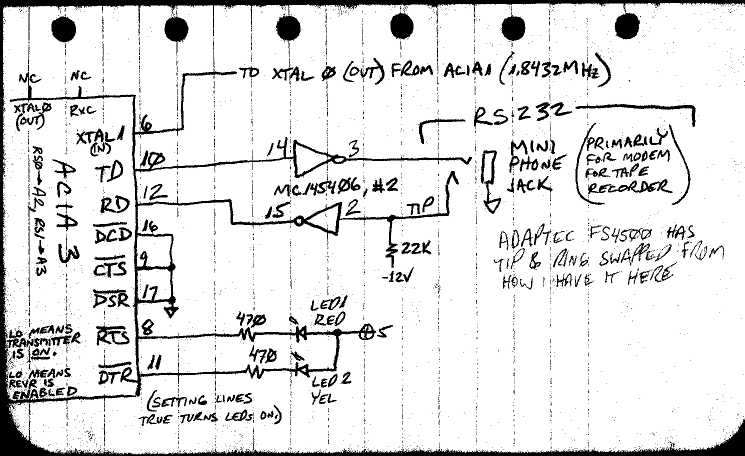 TO XTAL Ø (OUT) FROM ACIA1 (1.8432MHz)
NC
NC
XTALØ
(OUT)
RxC
XTAL1
(IN)
6
RS232
ACIA 3
RS0→A2, RS1→A3
TD
10
14
3
MINI
PHONE
JACK
(PRIMARILY
FOR MODEM
FOR TAPE
RECORDER)
RD
12
MC145406, #2
15
2
TIP
DCD
16
22K
-12V
ADAPTEC FS4500 HAS
TIP & RING SWAPPED FROM
HOW I HAVE IT HERE
CTS
9
DSR
17
RTS
8
47Ø
LED1
RED
+5
LO MEANS
TRANSMITTER
IS ON.
DTR
11
47Ø
LED 2
YEL
LO MEANS
RCVR IS
ENABLED
(SETTING LINES
TRUE TURNS LEDS ON.)